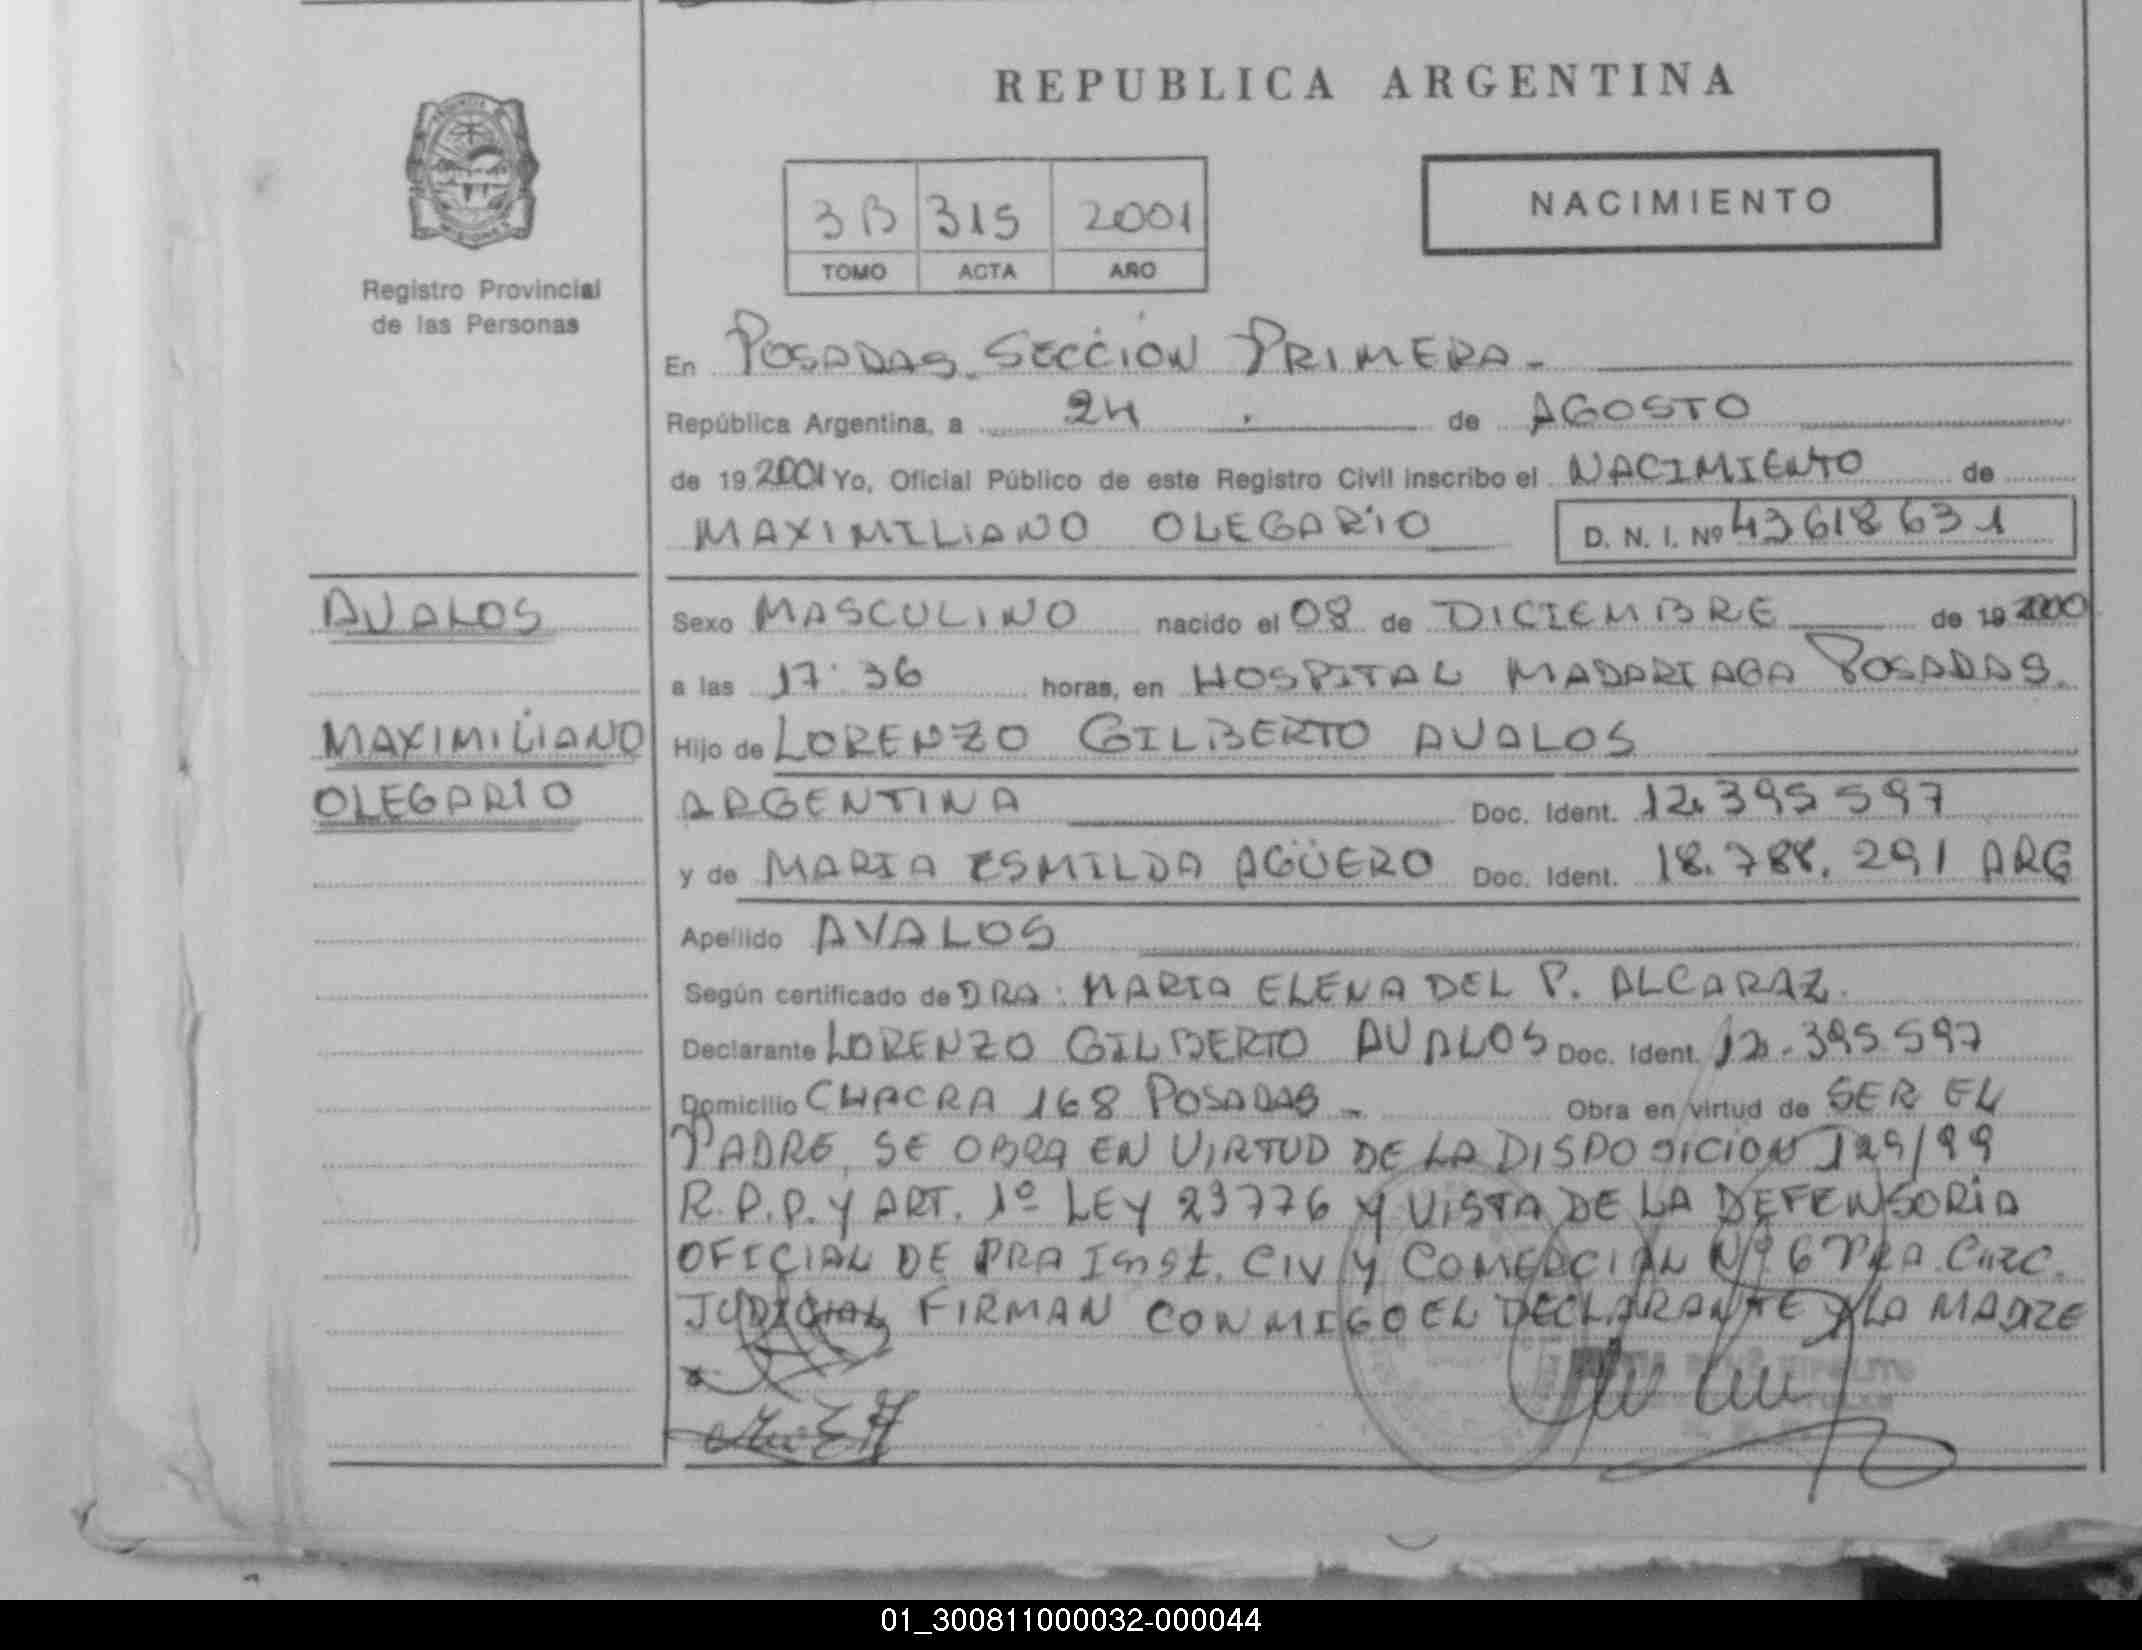 REPUBLICA ARGENTINA
NACIMIENTO
3B 315 2001
TOMO ACTA AÑO
Registro Provincial
de las Personas
En POSADAS. SECCION PRIMERA-
República Argentina, a 24 de AGOSTO
de 19 2001 Yo, Oficial Público de este Registro Civil inscribo el NACIMIENTO de
MAXIMILIANO OLEGARIO D. N. I. Nº 43618631
AVALOS
MAXIMILIANO
OLEGARIO
Sexo MASCULINO nacido el 08 de DICIEMBRE de 19 2000
a las 17:36 horas, en HOSPITAL MADARIAGA POSADAS.
Hijo de LORENZO GILBERTO AVALOS
ARGENTINA Doc. Ident. 12.395597
y de MARIA ESMILDA AGÜERO Doc. Ident. 18.788.291 ARG
Apellido AVALOS
Según certificado de DRA: MARIA ELENA DEL P. ALCARAZ.
Declarante LORENZO GILBERTO AVALOS Doc. Ident. 12.395597
Domicilio CHACRA 168 POSADAS- Obra en virtud de SER EL
PADRE, SE OBRA EN VIRTUD DE LA DISPOSICION 129/99
R.P.P. Y ART. 1º LEY 23776 Y VISTA DE LA DEFENSORIA
OFICIAL DE PRA Inst. CIV Y COMERCIAL Nº 6 PRA CIRC.
JUDICIAL FIRMAN CONMIGO EL DECLARANTE Y LA MADRE
01_300811000032-000044